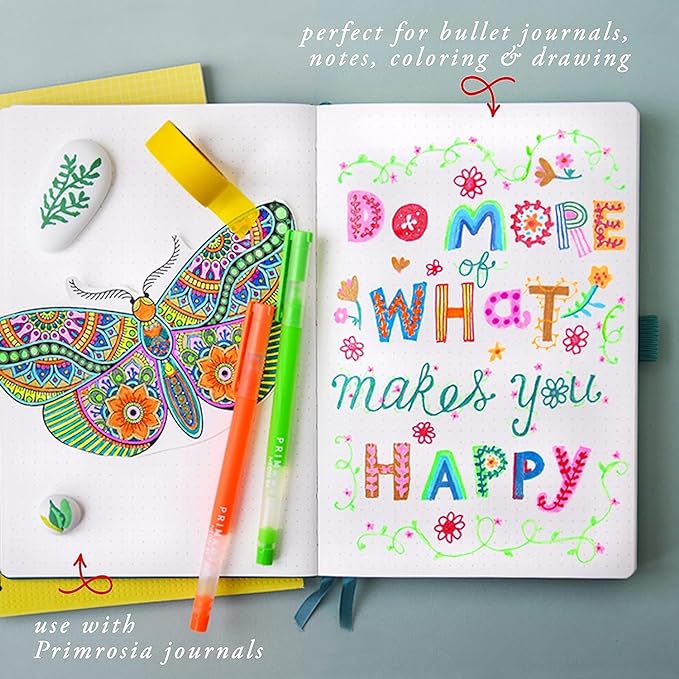 perfect for bullet journals,
notes, coloring & drawing
DO MORE
of
WHAT
makes you
HAPPY
use with
Primrosia journals